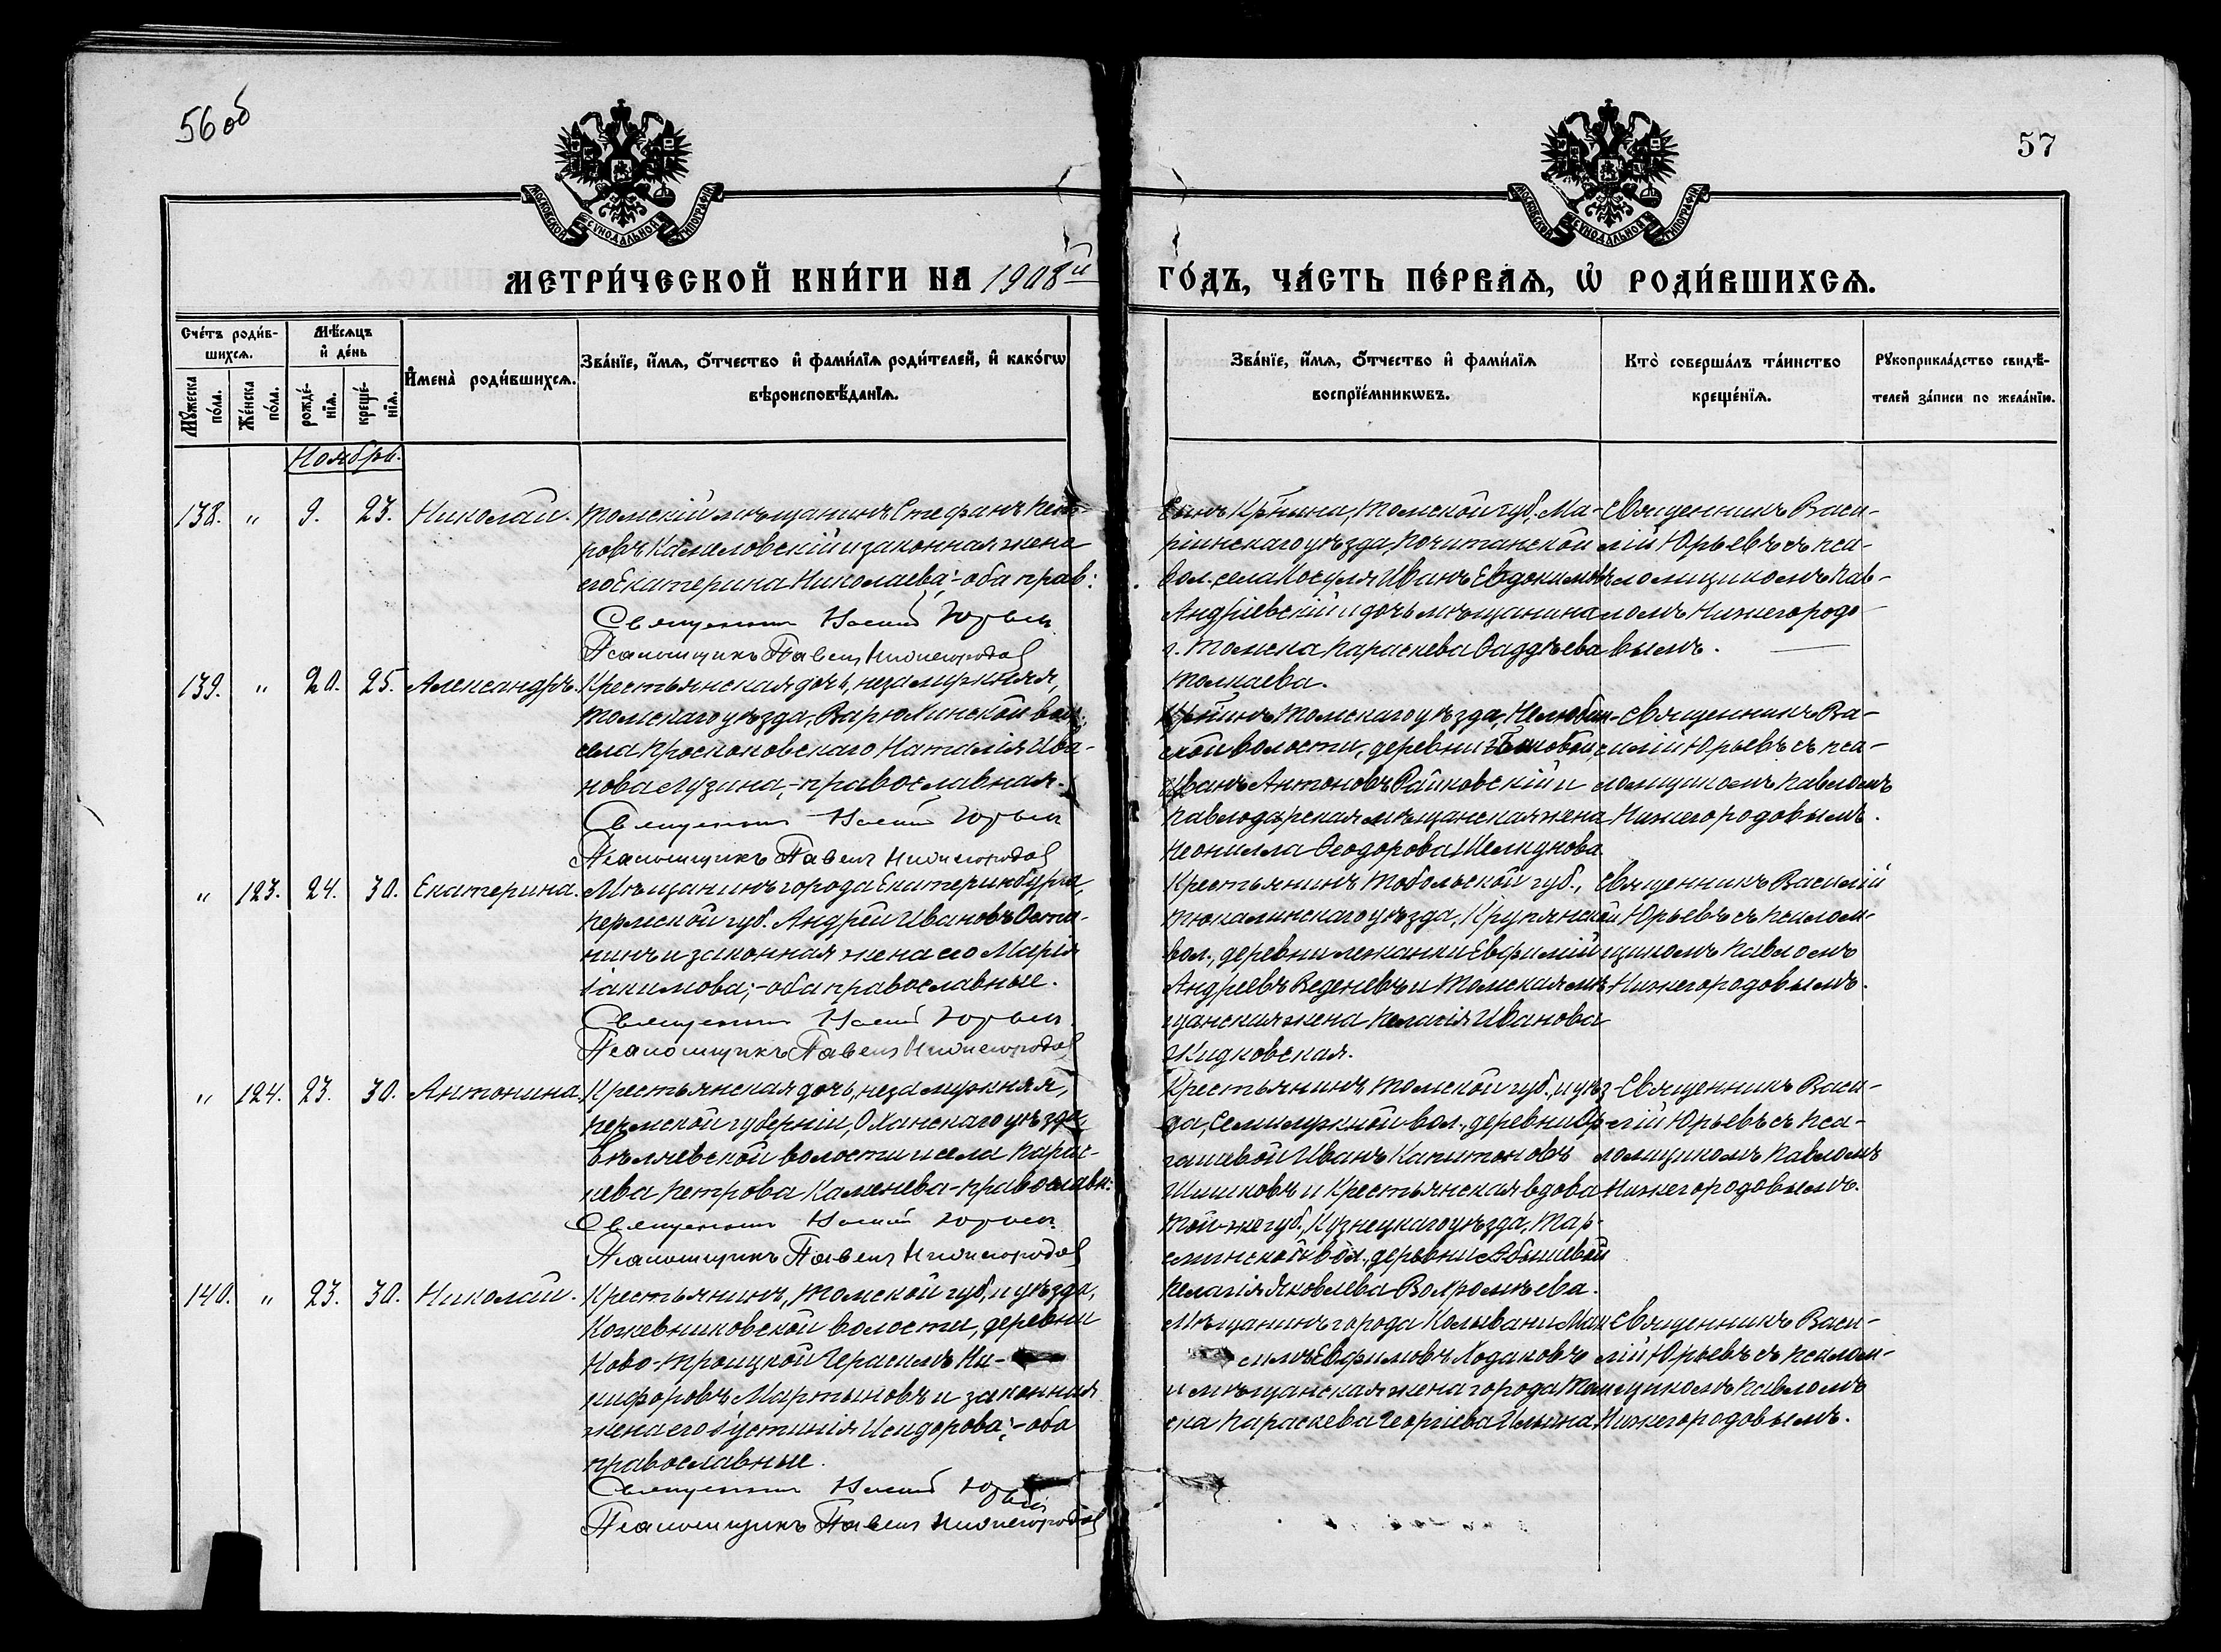 56 об
57
МОСКОВСКОЙ СѴНОДАЛЬНОЙ ТИПОГРАФІИ
МОСКОВСКОЙ СѴНОДАЛЬНОЙ ТИПОГРАФІИ
МЕТРИ́ЧЕСКОЙ КНИ́ГИ НА 1908й
ГО́ДЪ, ЧА́СТЬ ПЕ́РВАѦ, Ѡ҆ РОДИ́ВШИХСѦ.
Сче́тъ роди́в-
шихсѧ.
Мꙋ́жеска по́ла.
Же́нска по́ла.
Мѣ́сѧцъ
и҆ де́нь
рожде́-
нїѧ.
креще́-
нїѧ.
И҆мена̀ роди́вшихсѧ.
Зва́нїе, и҆́мѧ, ѻ҆́тчество и҆ фами́лїѧ роди́телей, и҆ како́гѡ
вѣроисповѣ́данїѧ.
Зва́нїе, и҆́мѧ, ѻ҆́тчество и҆ фами́лїѧ
воспрїе́мникѡвъ.
Кто̀ соверша́лъ та́инство
креще́нїѧ.
Рꙋкоприкла́дство свидѣ́-
телей за́писи по жела́нїю.
Ноябрь.
138. " 9. 23. Николай.
Томскій мѣщанинъ Стефанъ Пет-
ровъ Камеловскій и законная жена
его Екатерина Николаева; - оба прав:
Священникъ Василій Юрьевъ
Псаломщикъ Павелъ Нижегородов
Сынъ Кр-нина, Томской губ., Ма-
ріинскаго уѣзда, Почитанской
вол. села Косуля Иванъ Евдокимовъ
Андріевскій и дочь мѣщанина
г. Томска Параскева Фаддѣева
Толкаева.
Священникъ Васи-
лій Юрьевъ съ пса-
ломщикомъ Пав-
ломъ Нижегородо-
вымъ.
139. " 20. 25. Александръ.
Крестьянская дочь, незамужняя,
Томскаго уѣзда, Варюхинской вол.,
села Проскоковскаго Наталія Ива-
нова Музина, - православная.
Священникъ Василій Юрьевъ
Псаломщикъ Павелъ Нижегородов
Кр-нинъ Томскаго уѣзда, Нелюбин-
ской волости, деревни
Иванъ Антоновъ Райковскій и
Павлодарская мѣщанская жена
Неонилла Ѳеодорова Шелкунова.
Священникъ Ва-
силій Юрьевъ съ пса-
ломщикомъ Павломъ
Нижегородовымъ.
" 123. 24. 30. Екатерина.
Мѣщанинъ города Екатеринбурга,
Пермской губ. Андрей Ивановъ Оста-
нинъ и законная жена его Марія
Іакимова; - оба православные.
Священникъ Василій Юрьевъ
Псаломщикъ Павелъ Нижегородов
Крестьянинъ Тобольской губ.,
Тюкалинскаго уѣзда, Крупянской
вол., деревни Лежанки Евфимій
Андреевъ Веденевъ и Томская мѣ-
щанская жена Пелагія Иванова
Жидковская.
Священникъ Василій
Юрьевъ съ псалом-
щикомъ Павломъ
Нижегородовымъ.
" 124. 23. 30. Антонина.
Крестьянская дочь, незамужняя,
Пермской губерніи, Оханскаго уѣзда,
Бѣляевской волости и села Парас-
кева Петрова Каменева - православн:
Священникъ Василій Юрьевъ
Псаломщикъ Павелъ Нижегородов
Крестьянинъ Томской губ., и уѣз-
да, Семилужной вол., деревни Ар-
гашевой Иванъ Капитоновъ
Шишковъ и Крестьянская вдова
той-же губ., Кузнецкаго уѣзда, Тар-
сминской вол., деревни Абышевой
Пелагія Яковлева Вахромѣева.
Священникъ Васи-
лій Юрьевъ съ пса-
ломщикомъ Павломъ
Нижегородовымъ.
140. " 23. 30. Николай.
Крестьянинъ, Томской губ., и уѣзда,
Кожевниковской волости, деревни
Ново-Троицкой Герасимъ Ни-
кифоровъ Мартыновъ и законная
жена его Іустинія Исидорова; - оба
православные.
Священникъ Василій Юрьевъ
Псаломщикъ Павелъ Нижегородов
Мѣщанинъ города Колывани Мак-
симъ Евфимовъ Ходаковъ
и мѣщанская жена города Том-
ска Параскева Георгіева Ильина
Священникъ Васи-
лій Юрьевъ съ псалом-
щикомъ Павломъ
Нижегородовымъ.